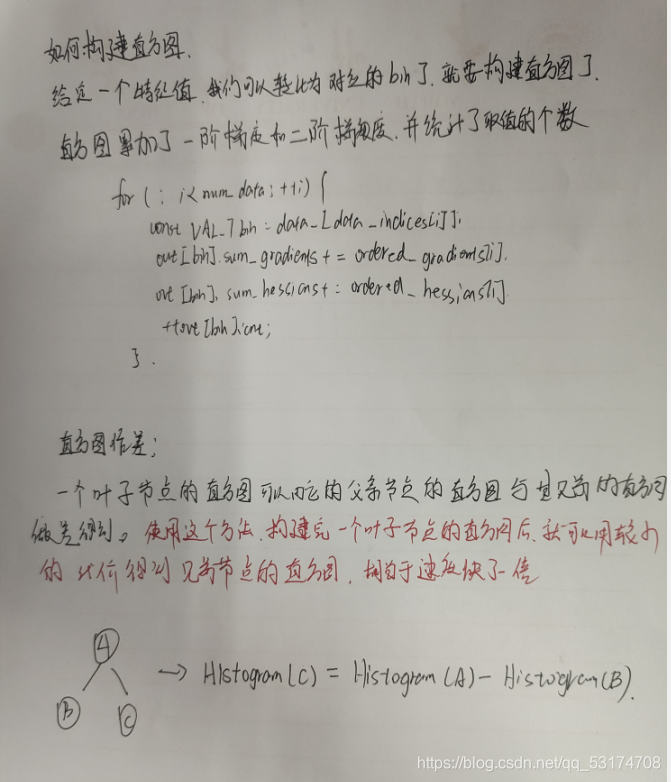 如何构建直方图.
给定一个特征值,我们可以转化为对应的bin了.就要构建直方图了.
直方图累加了一阶梯度和二阶梯度,并统计了取值的个数
for (; i<num_data; ++i) {
const VAL_T bin = data_[data_indices[i]];
out[bin].sum_gradients += ordered_gradients[i].
out[bin].sum_hessians += ordered_hessians[i]
++out[bin].cnt;
}.
直方图作差;
一个叶子节点的直方图可以由它的父亲节点的直方图与其兄弟的直方图
做差得到。使用这个方法,构建完一个叶子节点的直方图后,就可以用较小
的代价得到兄弟节点的直方图,相当于速度快了一倍
A
B C
→ Histogram(C) = Histogram(A) - Histogram(B).
https://blog.csdn.net/qq_53174708